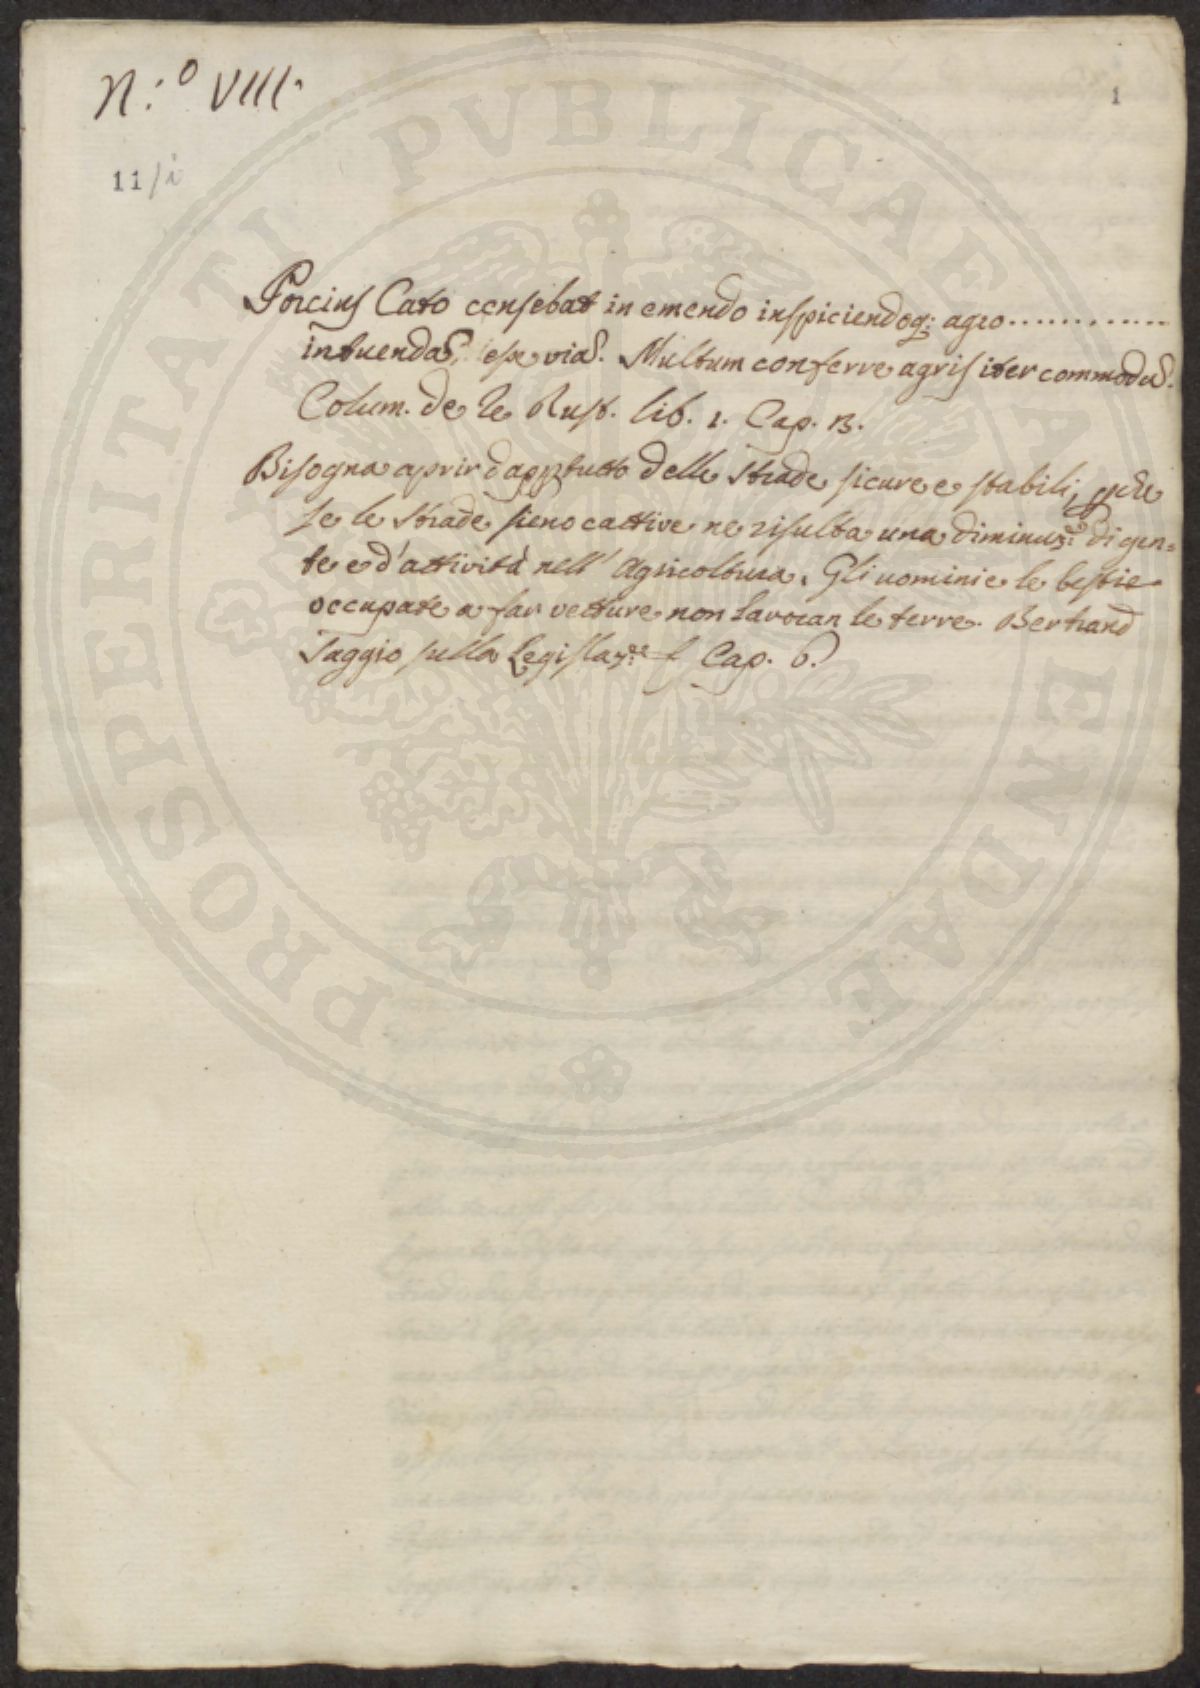 N.º VIII.
1
11/i
PROSPERITATI PVBLICAE AVGENDAE
Porcius Cato censebat in emendo inspiciendoq; agro.............
intuendas, esse vias. Multum conferre agris iter commodũ.
Colum. de Re Rust. lib. 1. Cap. 13.
Bisogna aprir dappertutto delle strade sicure e stabili, perche
se le strade sieno cattive ne risulta una diminuz.ne di gen=
te e d'attività nell' Agricoltura. Gli uomini e le bestie
occupate a far vetture non lavoran le terre. Bertrand
Saggio sulla Legislaz.ne Cap. 6.